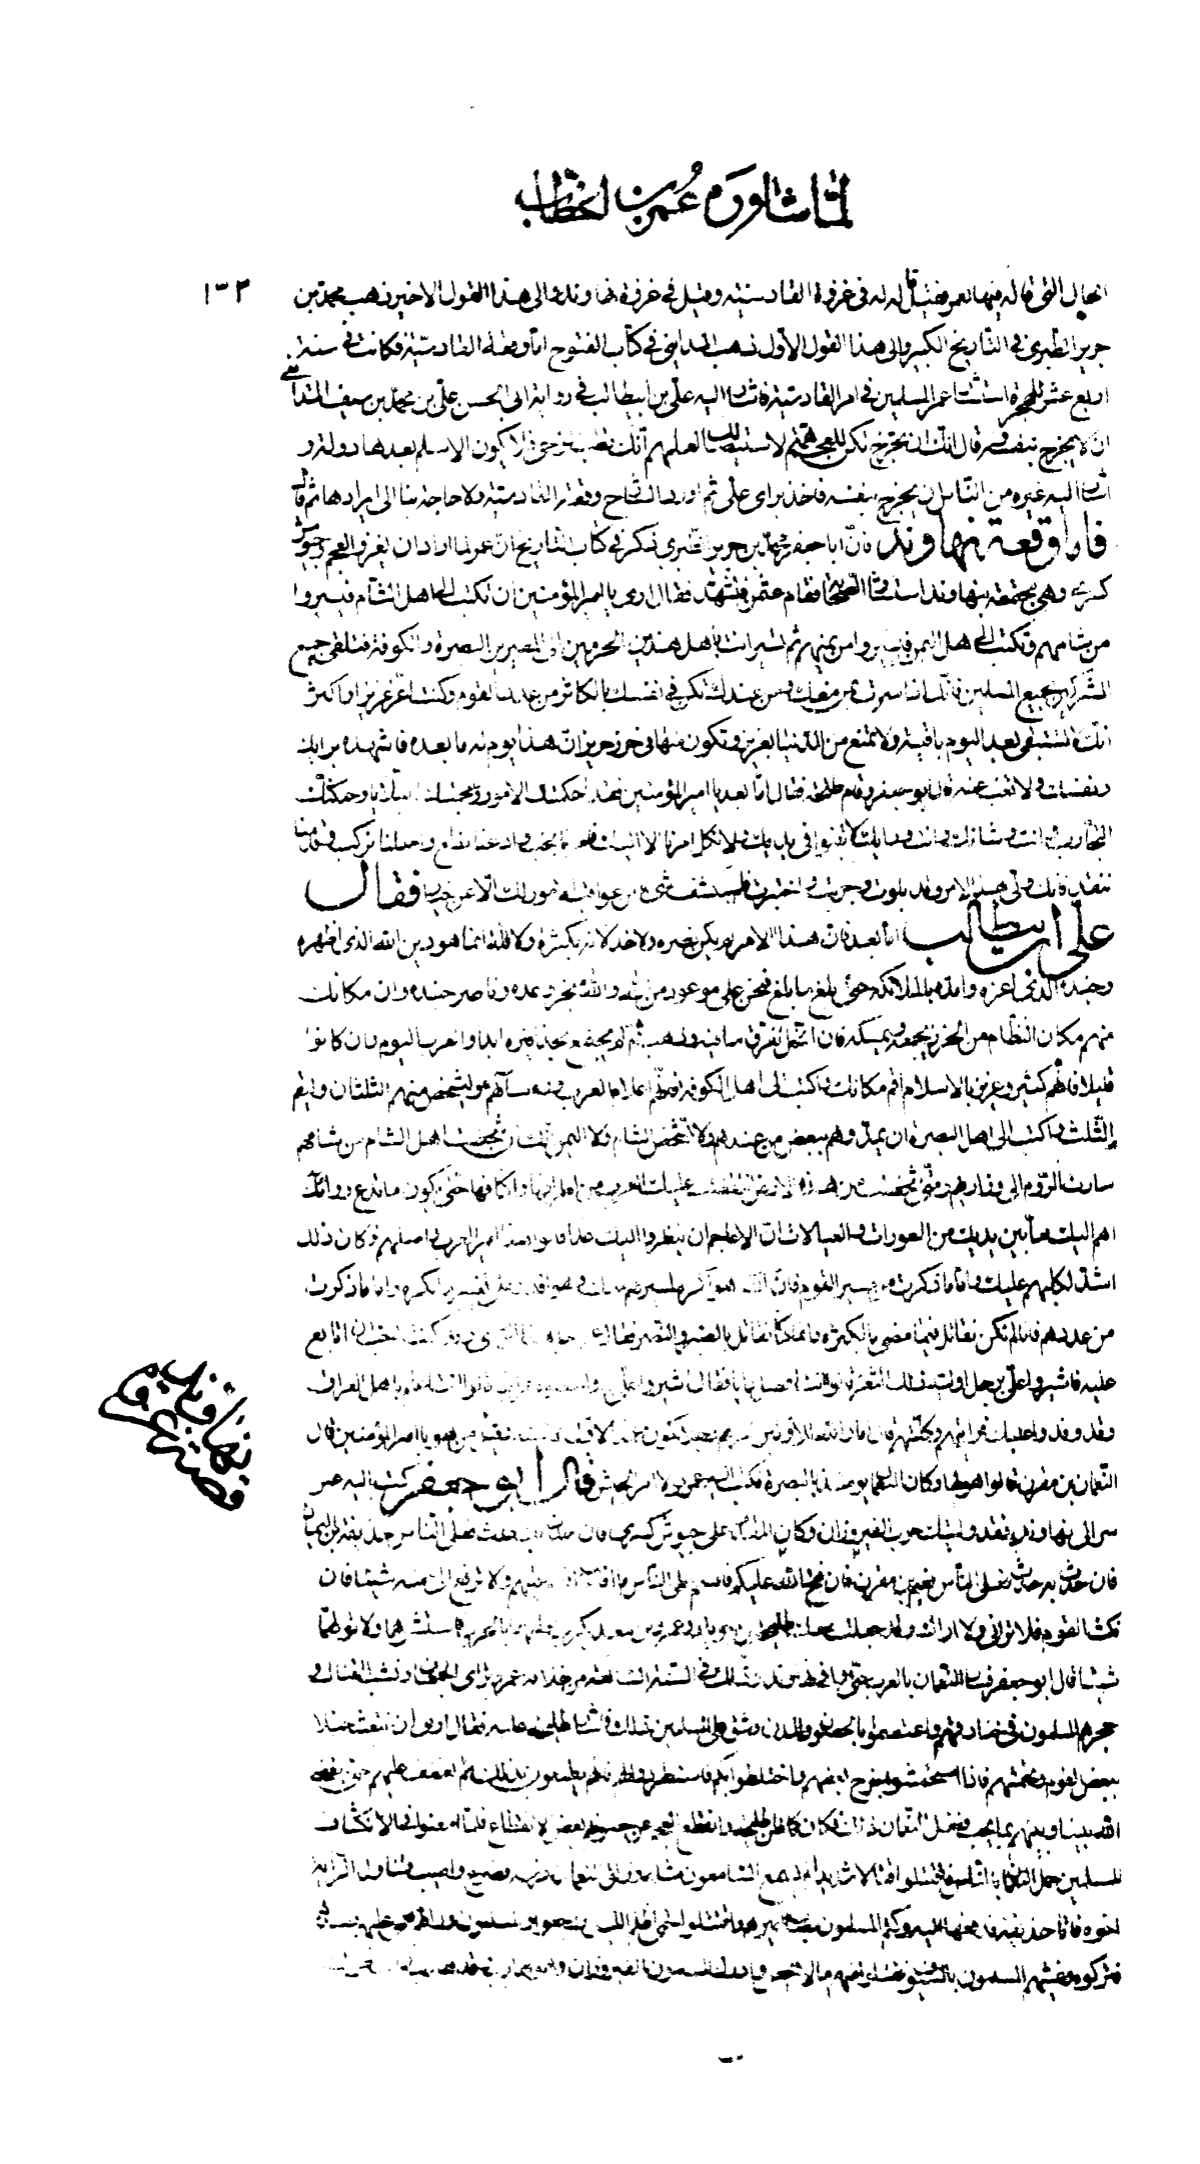 لما شاوره عمر بن الخطاب
١٣٢
الحال التي قاله فيها لعمر فقيل قاله له في غزوة القادسية وقيل في غزوة نهاوند والى هذا القول الاخير ذهب محمد بن
جرير الطبري في التاريخ الكبير والى هذا القول الاول ذهب المدايني في كتاب الفتوح اما وقعة القادسية فكانت في سنة
اربع عشر للهجرة استشار عمر المسلمين في امر القادسية فاشار اليه علي بن ابيطالب في رواية ابي الحسن علي بن محمد بن سيف المدايني
ان لا يخرج بنفسه وقال انك ان تخرج لا يكن للعجم همة الا استيصالك لعلمهم انك قطب رحى العرب فلا يكون للاسلام بعدها دولة و
اشار اليه غيره من الناس ان يخرج بنفسه فاخذ براي علي ثم
فاما وقعة نهاوند فان ابا جعفر محمد بن جرير الطبري ذكر في كتاب التاريخ ان عمر لما اراد ان يغزو العجم وجيوش
كسرى وهي مجتمعة بنهاوند استشار الصحابة فقام عثمن فتشهد فقال ارى يا امير المؤمنين ان تكتب الى اهل الشام فيسيروا
من شامهم وتكتب الى اهل اليمن فيسيروا من يمنهم ثم تسير انت باهل هذين الحرمين الى المصرين البصرة والكوفة فتلقى جميع
المشركين بجميع المسلمين فانك اذا سرت بمن معك ومن عندك قل في نفسك ما تكاثر من عدد القوم وكنت اعز عزيزا واكثر
انك لا تستبقي بعد اليوم باقية ولا تمتع من الدنيا بعزيز وتكون منها في حرز حريز ان هذا يوم له ما بعده فاشهده برايك
ونفسك ولا تغب عنه قال ابو جعفر وقام طلحة فقال اما بعد يا امير المؤمنين فقد احكمتك الامور وعجمتك البلايا وحنكتك
التجارب وانت وشانك وانت ورايك لا ننبو في يديك ولا نكل امرنا الا اليك فمرنا نجب وادعنا نطع واحملنا نركب وقدنا
ننقد فانك ولي هذا الامر وقد بلوت وجربت واختبرت فلم ينكشف شيء من عواقب الامور لك الا عن خيار فقال
علي بن ابيطالب اما بعد فان هذا الامر لم يكن نصره ولا خذلانه بكثرة ولا قلة انما هو دين الله الذي اظهره
وجنده الذي اعزه وامده بالملائكة حتى بلغ ما بلغ فنحن على موعود من الله والله منجز وعده وناصر جنده وان مكانك
منهم مكان النظام من الخرز يجمعه ويمسكه فان انحل تفرق ما فيه وذهب ثم لم يجتمع بحذافيره ابدا والعرب اليوم وان كانوا
قليلا فانهم كثير وعزيز بالاسلام اقم مكانك واكتب الى اهل الكوفة فانهم اعلام العرب ورؤساؤهم وليشخص منهم الثلثان وليقم
الثلث واكتب الى اهل البصرة ان يمدوهم ببعض من عندهم ولا تشخص الشام ولا اليمن انك ان اشخصت اهل الشام من شامهم
سارت الروم الى ذراريهم ومتى شخصت من هذه الارض انتقضت عليك العرب من اقطارها واكنافها حتى يكون ما تدع وراءك
اهم اليك مما بين يديك من العورات والعيالات ان الاعاجم ان ينظروا اليك غدا قالوا هذا امير العرب واصلهم فكان ذلك
اشد لكلبهم عليك واما ما ذكرت من مسير القوم فان الله هو اكره لمسيرهم منك وهو اقدر على تغيير ما يكره واما ما ذكرت
من عددهم فانا لم نكن نقاتل فيما مضى بالكثرة وانما كنا نقاتل بالصبر والنصر فقال عمر هذا الراي وقد كنت احب ان اتابع
عليه فاشيروا علي برجل اوليه ذلك الثغر قالوا انت افضل رايا فقال اشيروا علي واجعلوه عراقيا قالوا انت اعلم باهل العراق
وقد وفدوا عليك فرايتهم وكلمتهم قال اما والله لاولين امرهم رجلا يكون غدا لاول الاسنة قيل من هو يا امير المؤمنين قال
النعمان بن مقرن قالوا هو لها وكان النعمان يومئذ بالبصرة فكتب اليه عمر فولاه امر الجيش قال ابو جعفر كتب اليه عمر
سر الى نهاوند فقد وليتك حرب الفيروزان وكان المقدم على جيوش كسرى فان حدث بك حدث فعلى الناس حذيفة بن اليمان
فان حدث به حدث فعلى الناس نعيم بن مقرن فان فتح الله عليكم فاقسم على الناس ما افاء الله عليهم ولا ترفع الي منه شيئا فان
نكث القوم فلا تراني ولا اراك وقد جعلت معك طليحة بن خويلد وعمرو بن معديكرب لعلمهما بالحرب فاستشرهما ولا تولهما
شيئا قال ابو جعفر فسار النعمان بالعرب حتى وافى نهاوند وذلك في السنة السابعة من خلافة عمر وتراءى الجمعان ونشب القتال و
حجزهم المسلمون في خنادقهم واعتصموا بالحصون والمدن وشق على المسلمين ذلك فاشار طليحة عليه فقال ارى ان تبعث خيلا
ببعض القوم وتحمشهم فاذا استحمشوا خرج بعضهم واختلطوا بكم فاستطردوا لهم فانهم يطمعون بذلك ثم نعطف عليهم حتى يقضي
الله بيننا وبينهم بما يحب ففعل النعمان ذلك فكان كما ظن طليحة وانقطع العجم عن حصونهم بعض الانقطاع فلما امعنوا في الانكشاف
للمسلمين حمل النعمان بالناس فاقتتلوا قتالا شديدا لم يسمع السامعون مثله وزلق بالنعمان فرسه فصرع واصيب وتناول الراية
اخوه فاتا حذيفة فدفعها اليه وكتم المسلمون مصاب اميرهم واقتتلوا حتى اظلم الليل ورجعوا والمسلمون وراءهم فعمي عليهم قصدهم
فتركوه وغشيهم المسلمون بالسيوف فقتلوا منهم ما لا يحصى وادرك المسلمون الفيروزان وهو هارب
قصة عزم
نهاوند